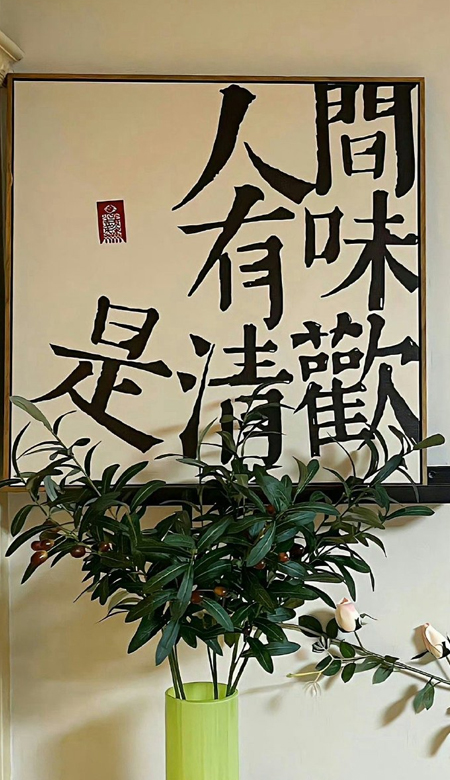 人間
有味
是清歡